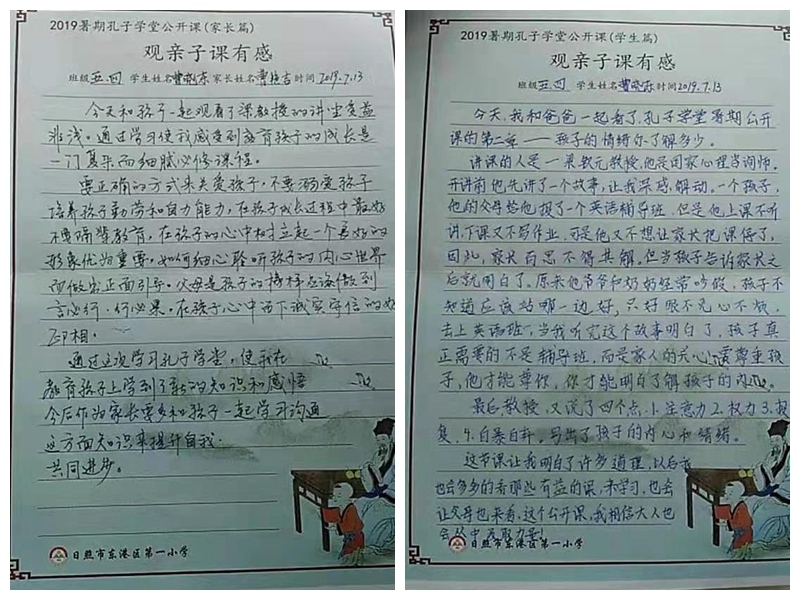 2019暑期孔子学堂公开课(家长篇)
观亲子课有感
班级五.四 学生姓名曹晓东家长姓名曹增吉时间2019.7.13
今天和孩子一起观看了梁教授的讲堂受益
非浅。通过学习使我感受到教育孩子的成长是
一门复杂而细腻必修课程。
要正确的方式来关爱孩子,不要溺爱孩子
培养孩子勤劳和自力能力,在孩子成长过程中最好
不要隔辈教育,在孩子的心中树立起一个良好的
形象优为重要。如何细心聆听孩子的内心世界
而做出正面引导。父母是孩子的榜样应该做到
言必行,行必果。在孩子心中西下诚实守信的好
印相。
通过这次学习孔子学堂,使我在
教育孩子上学到了新的知识和感悟
今后作为家长要多和孩子一起学习沟通
这方面知识来提升自我.
共同进步。
日照市东港区第一小学
2019暑期孔子学堂公开课(学生篇)
观亲子课有感
班级五.四 学生姓名曹晓东时间2019.7.13
今天,我和爸爸一起看了,孔子学堂暑期公开
课的第二章——孩子的情绪你了解多少。
讲课的人是一梁教元教授,他是国家心理咨询师。
开讲前他先讲了一个故事,让我深感触动。一个孩子,
他的父母给他报了一个英语辅导班,但是他上课不听
讲,下课又不写作业,可是他又不想让家长把课停了,
因此,家长百思不得其解。但当孩子告诉家长之
后就明白了。原来他爷爷和奶奶经常吵假,孩子不
知道应该站哪一边好,只好眼不见心不烦,
去上英语班,当我听完这个故事明白了,孩子真
正需要的不是辅导班,而是家人的关心,要尊重孩
子,他才能尊你,你才能明白了解孩子的内心。
最后教授,又说了四个点,1.注意力2.权力3.报
复,4.自暴自弃。写出了孩子的内心和情绪。
这节课让我明白了许多道理,以后我
也会多多的看那些有益的课,来学习,也会
让父母也来看,这个公开课,我相信大人也
会从中获取力量!
日照市东港区第一小学